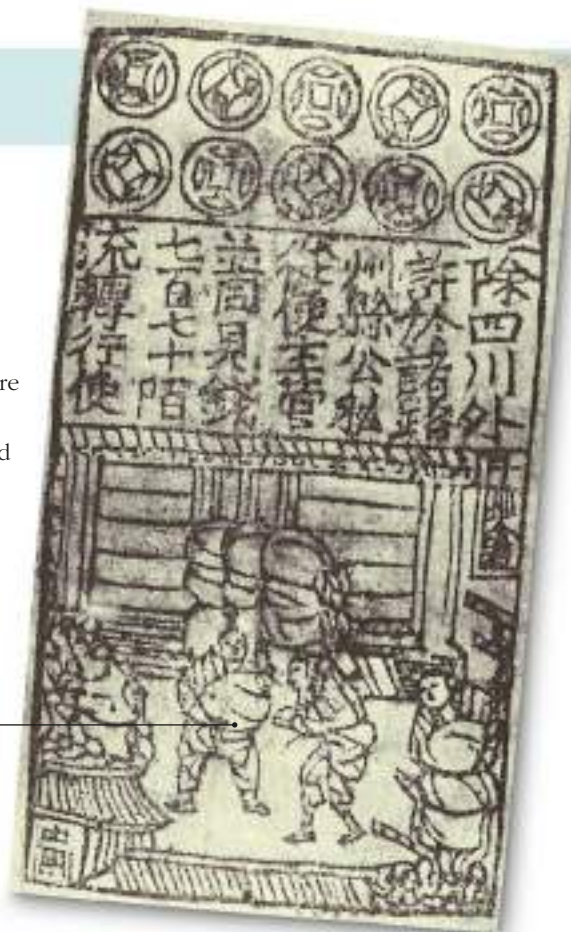 re
d
除四川外
許於諸路
州縣公私
從便主管
並同見錢
七百七十陌
流轉行使